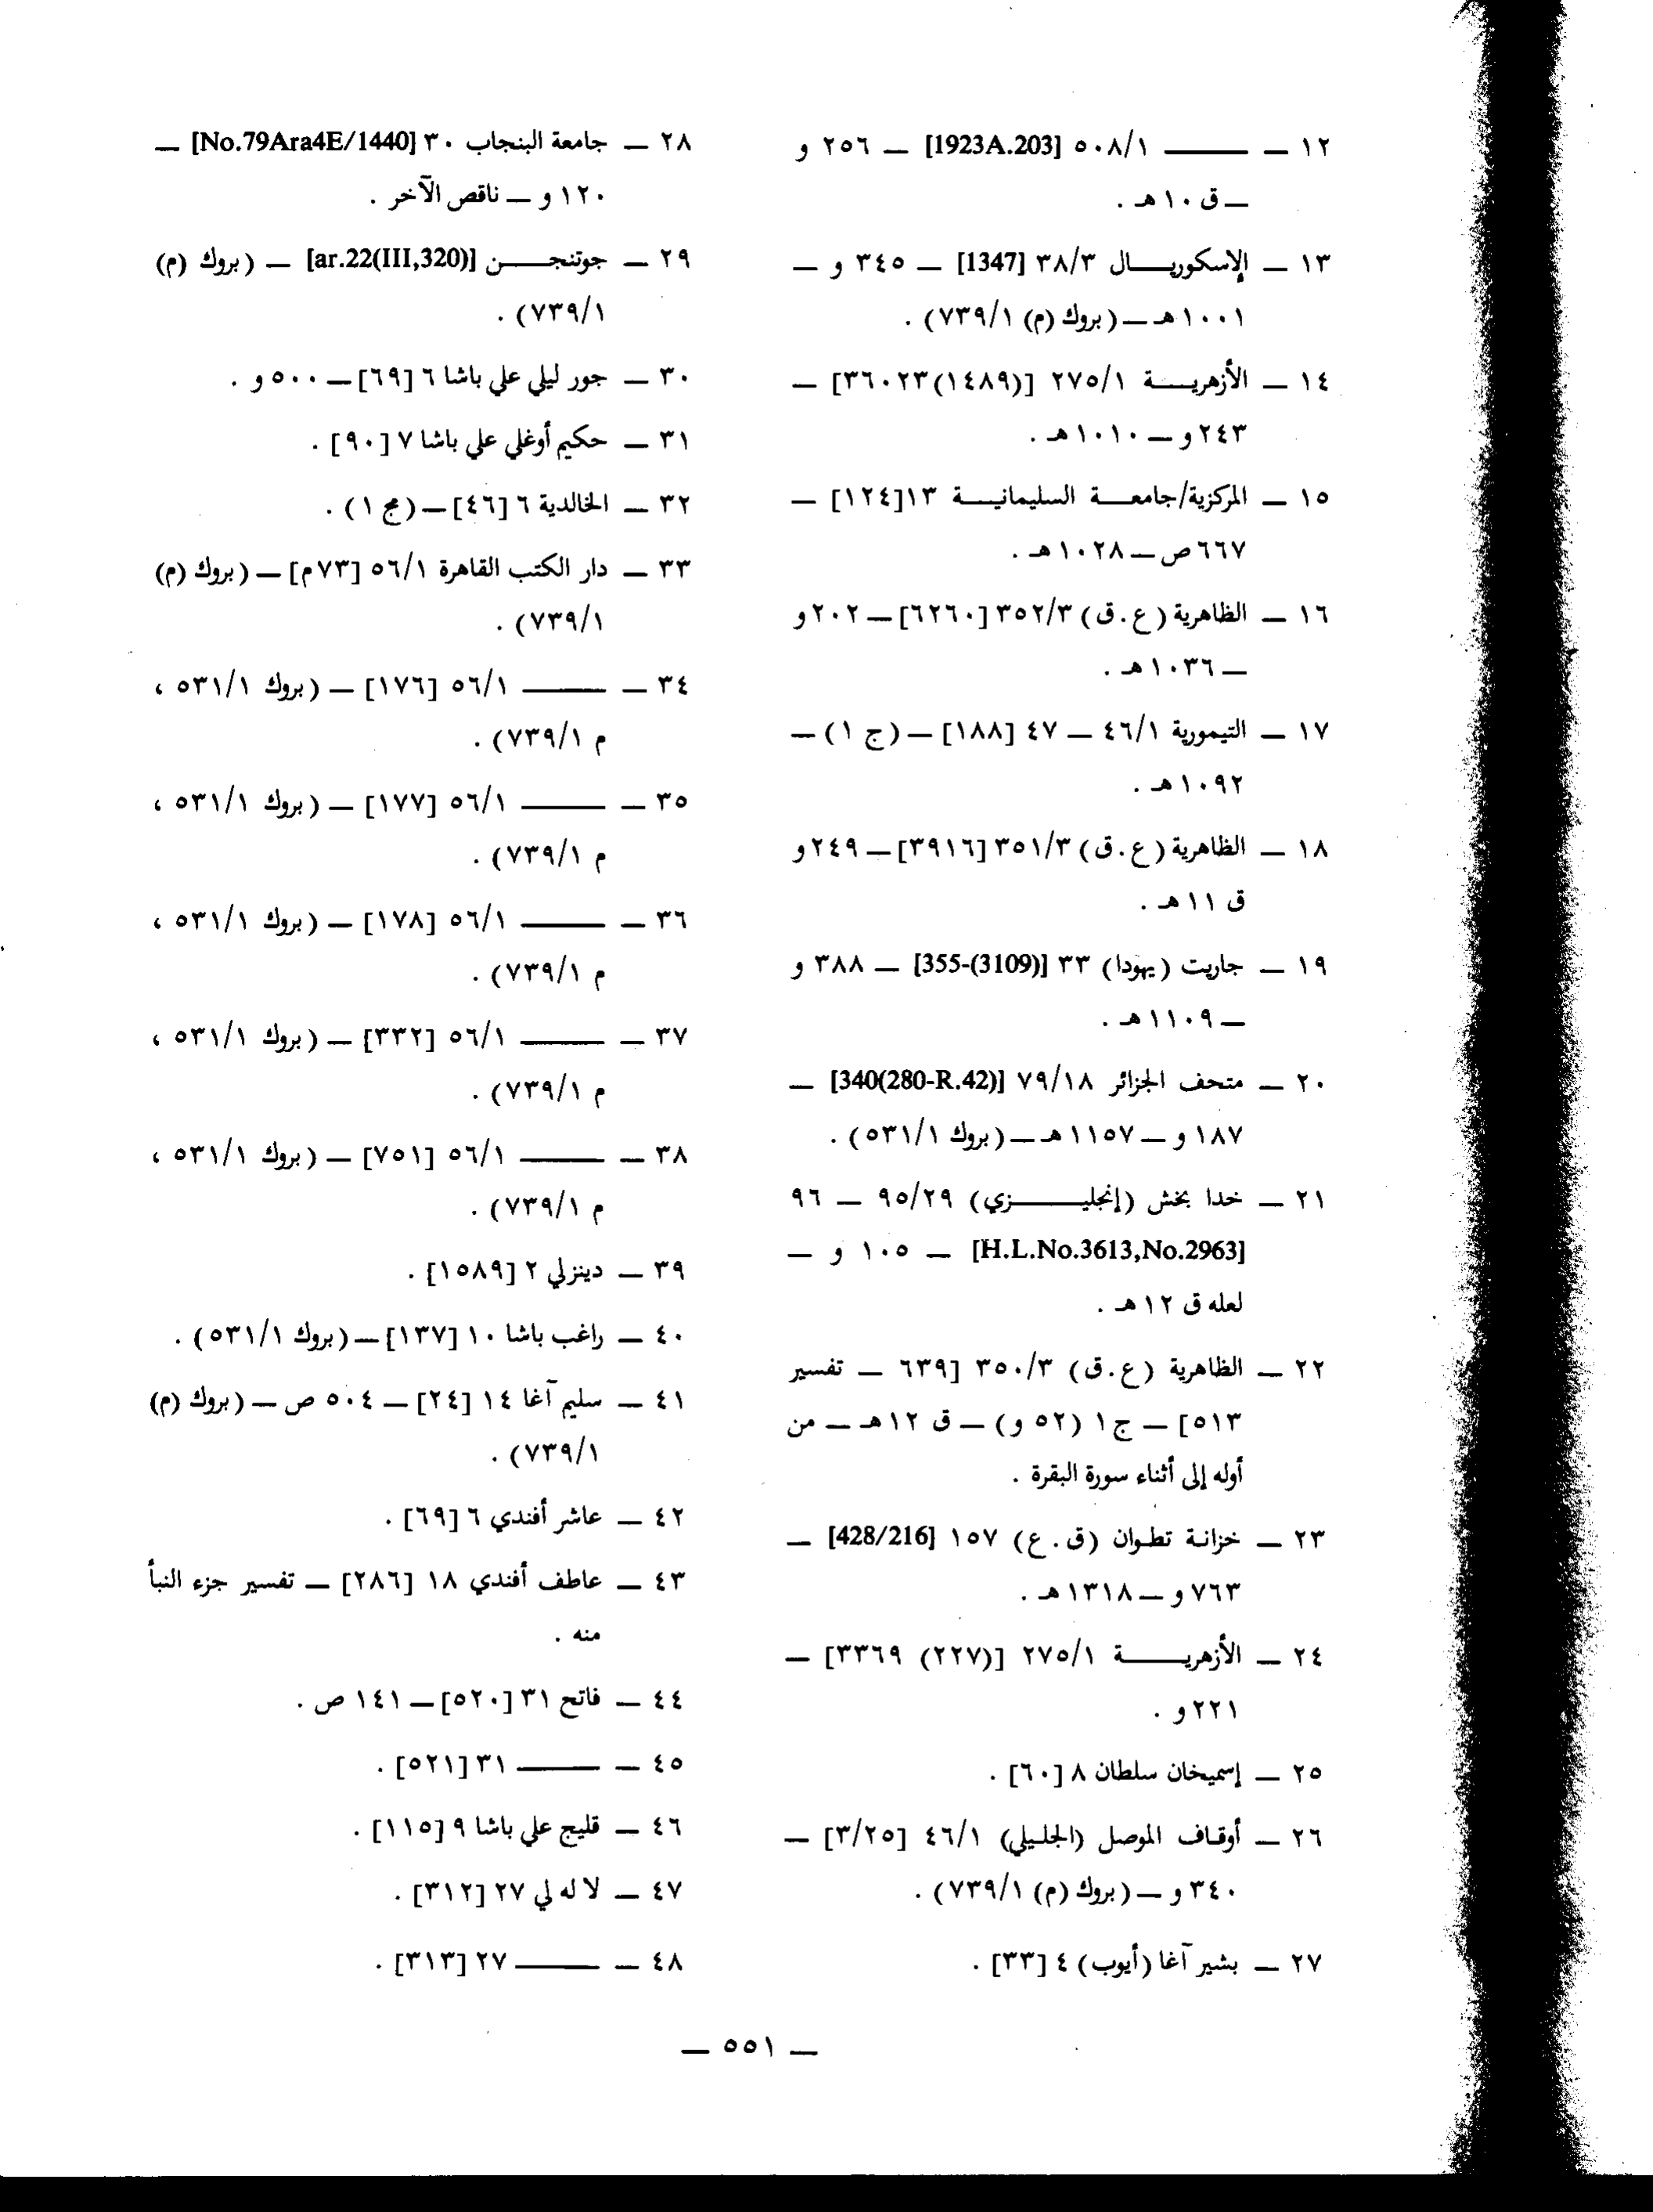 ١٢ — ——— ٥٠٨/١ [1923A.203] — ٢٥٦ و
— ق ١٠ هـ .
١٣ — الإسكوريـــال ٣٨/٣ [1347] — ٣٤٥ و —
١٠٠١ هـ — (بروك (م) ٧٣٩/١) .
١٤ — الأزهريــــة ٢٧٥/١ [(١٤٨٩) ٣٦٠٢٣] —
٢٤٣ و — ١٠١٠ هـ .
١٥ — المركزية/جامعــة السليمانيــة ١٣ [١٢٤] —
٦٦٧ ص — ١٠٢٨ هـ .
١٦ — الظاهرية (ع . ق) ٣٥٢/٣ [٦٢٦٠] — ٢٠٢ و
— ١٠٣٦ هـ .
١٧ — التيمورية ٤٦/١ — ٤٧ [١٨٨] — (ج ١) —
١٠٩٢ هـ .
١٨ — الظاهرية (ع . ق) ٣٥١/٣ [٣٩١٦] — ٢٤٩ و
ق ١١ هـ .
١٩ — جاريت (يهودا) ٣٣ [355-(3109)] — ٣٨٨ و
— ١١٠٩ هـ .
٢٠ — متحف الجزائر ٧٩/١٨ [340(280-R.42)] —
١٨٧ و — ١١٥٧ هـ — (بروك ٥٣١/١) .
٢١ — خدا بخش (إنجليـــــزي) ٩٥/٢٩ — ٩٦
[H.L.No.3613,No.2963] — ١٠٥ و —
لعله ق ١٢ هـ .
٢٢ — الظاهرية (ع . ق) ٣٥٠/٣ [٦٣٩ — تفسير
٥١٣] — ج ١ (٥٢ و) — ق ١٢ هـ — من
أوله إلى أثناء سورة البقرة .
٢٣ — خزانة تطوان (ق . ع) ١٥٧ [428/216] —
٧٦٣ و — ١٣١٨ هـ .
٢٤ — الأزهريــــة ٢٧٥/١ [(٢٢٧) ٣٣٦٩] —
٢٢١ و .
٢٥ — إسميخان سلطان ٨ [٦٠] .
٢٦ — أوقاف الموصل (الجليلي) ٤٦/١ [٣/٢٥] —
٣٤٠ و — (بروك (م) ٧٣٩/١) .
٢٧ — بشير آغا (أيوب) ٤ [٣٣] .
٢٨ — جامعة البنجاب ٣٠ [No.79Ara4E/1440] —
١٢٠ و — ناقص الآخر .
٢٩ — جوتنجـــــن [ar.22(III,320)] — (بروك (م)
٧٣٩/١) .
٣٠ — جور ليلي علي باشا ٦ [٦٩] — ٥٠٠ و .
٣١ — حكيم أوغلي علي باشا ٧ [٩٠] .
٣٢ — الخالدية ٦ [٤٦] — (مج ١) .
٣٣ — دار الكتب القاهرة ٥٦/١ [٧٣م] — (بروك (م)
٧٣٩/١) .
٣٤ — ——— ٥٦/١ [١٧٦] — (بروك ٥٣١/١ ،
م ٧٣٩/١) .
٣٥ — ——— ٥٦/١ [١٧٧] — (بروك ٥٣١/١ ،
م ٧٣٩/١) .
٣٦ — ——— ٥٦/١ [١٧٨] — (بروك ٥٣١/١ ،
م ٧٣٩/١) .
٣٧ — ——— ٥٦/١ [٣٣٢] — (بروك ٥٣١/١ ،
م ٧٣٩/١) .
٣٨ — ——— ٥٦/١ [٧٥١] — (بروك ٥٣١/١ ،
م ٧٣٩/١) .
٣٩ — دينزلي ٢ [١٥٨٩] .
٤٠ — راغب باشا ١٠ [١٣٧] — (بروك ٥٣١/١) .
٤١ — سليم آغا ١٤ [٢٤] — ٥٠٤ ص — (بروك (م)
٧٣٩/١) .
٤٢ — عاشر أفندي ٦ [٦٩] .
٤٣ — عاطف أفندي ١٨ [٢٨٦] — تفسير جزء النبأ
منه .
٤٤ — فاتح ٣١ [٥٢٠] — ١٤١ ص .
٤٥ — ——— ٣١ [٥٢١] .
٤٦ — قليج علي باشا ٩ [١١٥] .
٤٧ — لا له لي ٢٧ [٣١٢] .
٤٨ — ——— ٢٧ [٣١٣] .
— ٥٥١ —